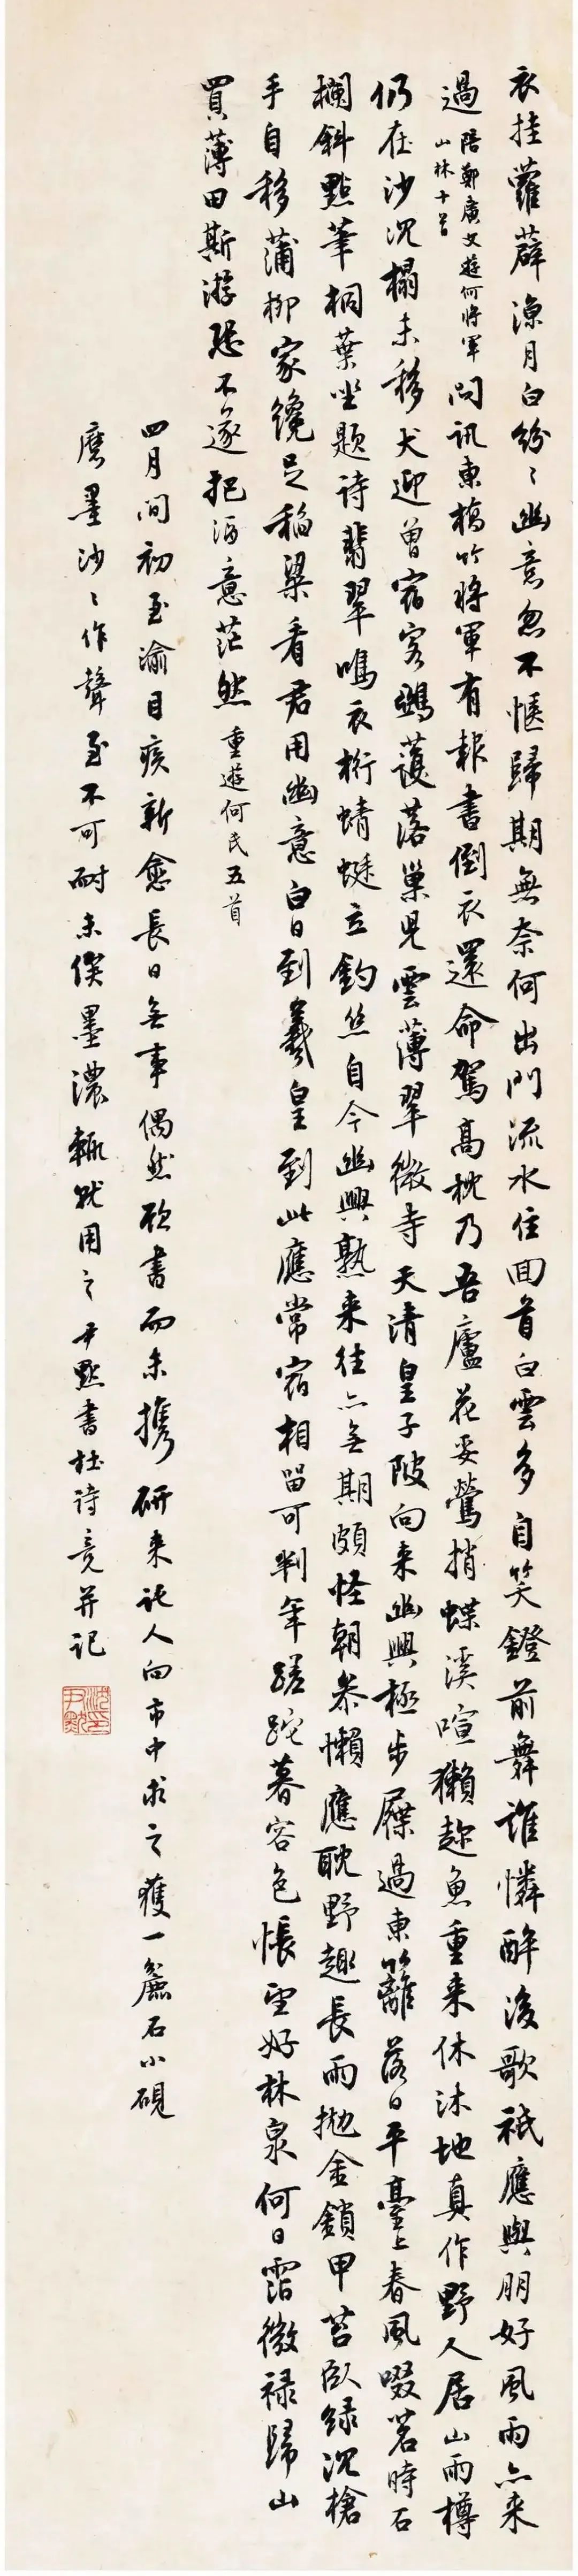 衣挂蘿薜涼月白紛〻幽意忽不愜歸期無奈何出門流水住回首白雲多自笑鐙前舞誰憐醉後歌祇應與朋好風雨亦来
過陪鄭廣文遊何將軍山林十首問訊東橋竹將軍有報書倒衣還命駕高枕乃吾廬花妥鶯捎蝶溪喧獺趂魚重来休沐地真作野人居山雨樽
仍在沙沉榻未移犬迎曾宿客鵶護落巢兒雲薄翠微寺天清皇子陂向来幽興極步屧過東籬落日平臺上春風啜茗時石
欄斜點筆桐葉坐題詩翡翠鳴衣桁蜻蜓立釣絲自今幽興熟来往亦無期頗怪朝參懶應耽野趣長雨拋金鎖甲苔臥綠沉槍
手自移蒲柳家纔足稻粱看君用幽意白日到羲皇到此應常宿相留可判年蹉跎暮容色悵望好林泉何日霑微祿歸山
買薄田斯游恐不遂把酒意茫然重遊何氏五首
四月間初至渝目疾新愈長日無事偶然欲書而未攜研来託人向市中求之獲一麤石小硯
磨墨沙〻作聲至不可耐未俟墨濃輒就用之尹默書杜詩竟并記
沈印尹默